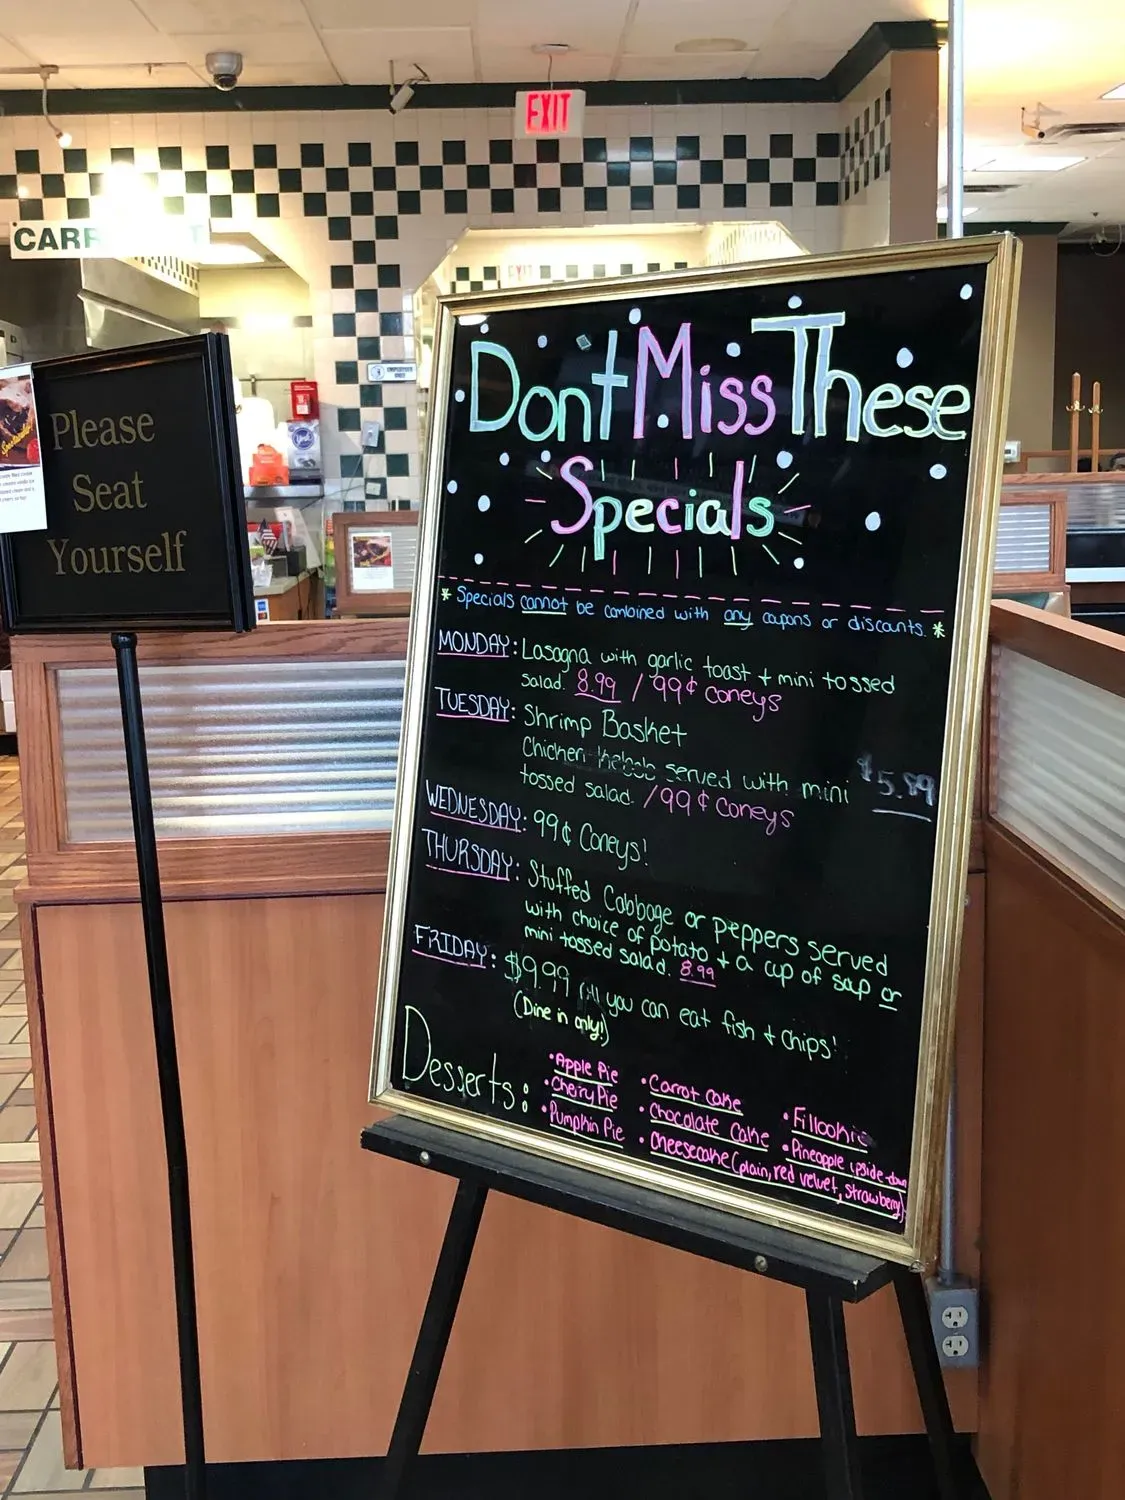 EXIT
CARRY OUT
Please
Seat
Yourself
Dont Miss These
Specials
* Specials cannot be combined with any coupons or discounts. *
MONDAY: Lasagna with garlic toast + mini tossed
salad. 8.99 / 99¢ coneys
TUESDAY: Shrimp Basket
Chicken kebob served with mini $5.89
tossed salad. / 99¢ coneys
WEDNESDAY: 99¢ Coneys!
THURSDAY: Stuffed Cabbage or peppers served
with choice of potato + a cup of soup or
mini tossed salad. 8.99
FRIDAY: $9.99 All you can eat fish + chips!
(Dine in only!)
Desserts:
• Apple Pie
• Cherry Pie
• Pumpkin Pie
• Carrot Cake
• Chocolate Cake
• Cheesecake (plain, red velvet, strawberry)
• Fillookie
• Pineapple upside-down